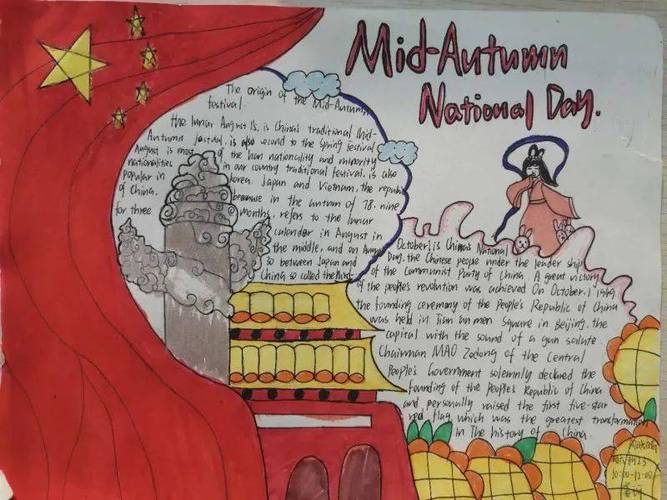 Mid-Autumn
National Day.
The origin of the Mid-Autumn
festival.
the lunar August 15, is China's traditional Mid-
Autumn festival, is also second to the Spring festival
August, is most of the han nationality and minority
nationalities in our country traditional festival, is also
popular in Korea Japan and Vietnam, the republi
of China. because in the autumn of 78. nine
for three months, refers to the lunar
calendar in August in
the middle, and on August
so between Japan and
China so called the
October, 1, is China's National
Day. the Chinese people under the leader ship
of the Communist Party of China. A great victory
of the people's revolution was achieved On October, 1 1949,
the founding ceremony of the People's Republic of China
was held in Tian'an men Square in Beijing. the
capital with the sound of a gun salute.
Chairman MAO Zedong of the Central
People's Government solemnly declared the
founding of the People's Republic of China
and personally raised the first five-star
red flag, which was the greatest transformation
in The history of China.